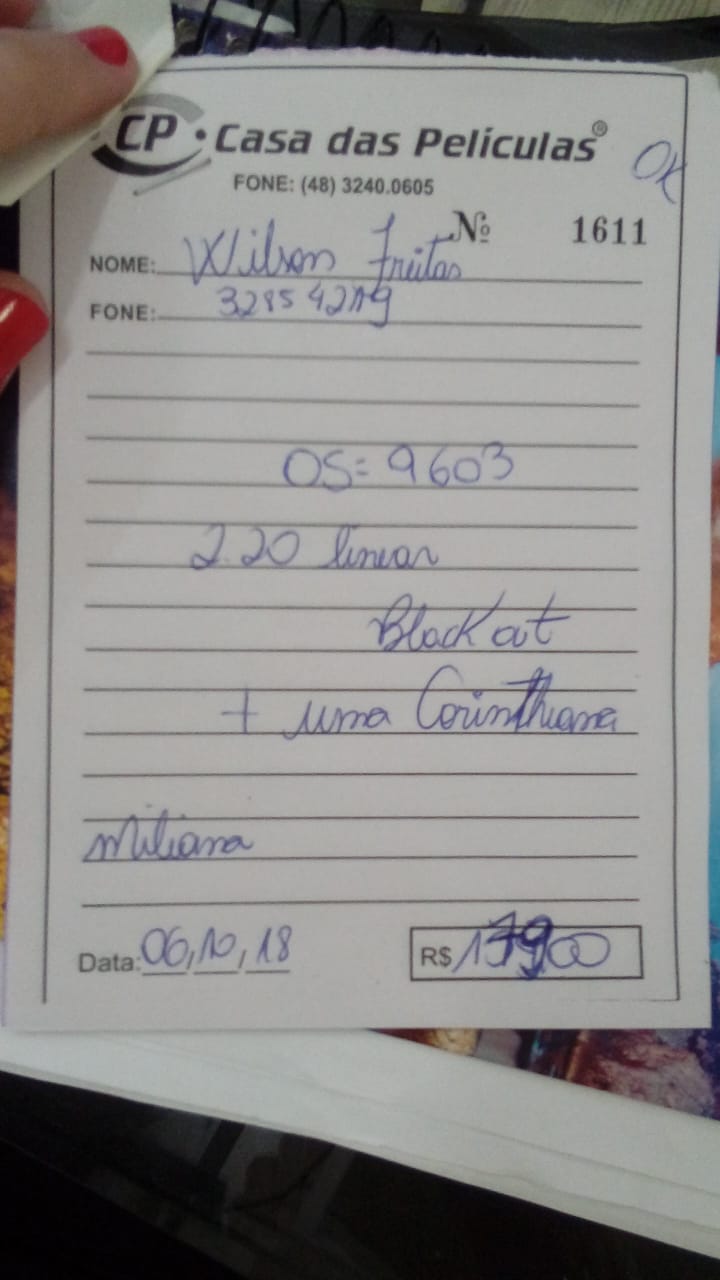 CP • Casa das Películas®
OK
FONE: (48) 3240.0605
Nº 1611
NOME: Wilson Freitas
FONE:
OS= 9603
2.20 linear
Black out
+ uma Corinthiana
Miliana
Data: 06,10,18
R$